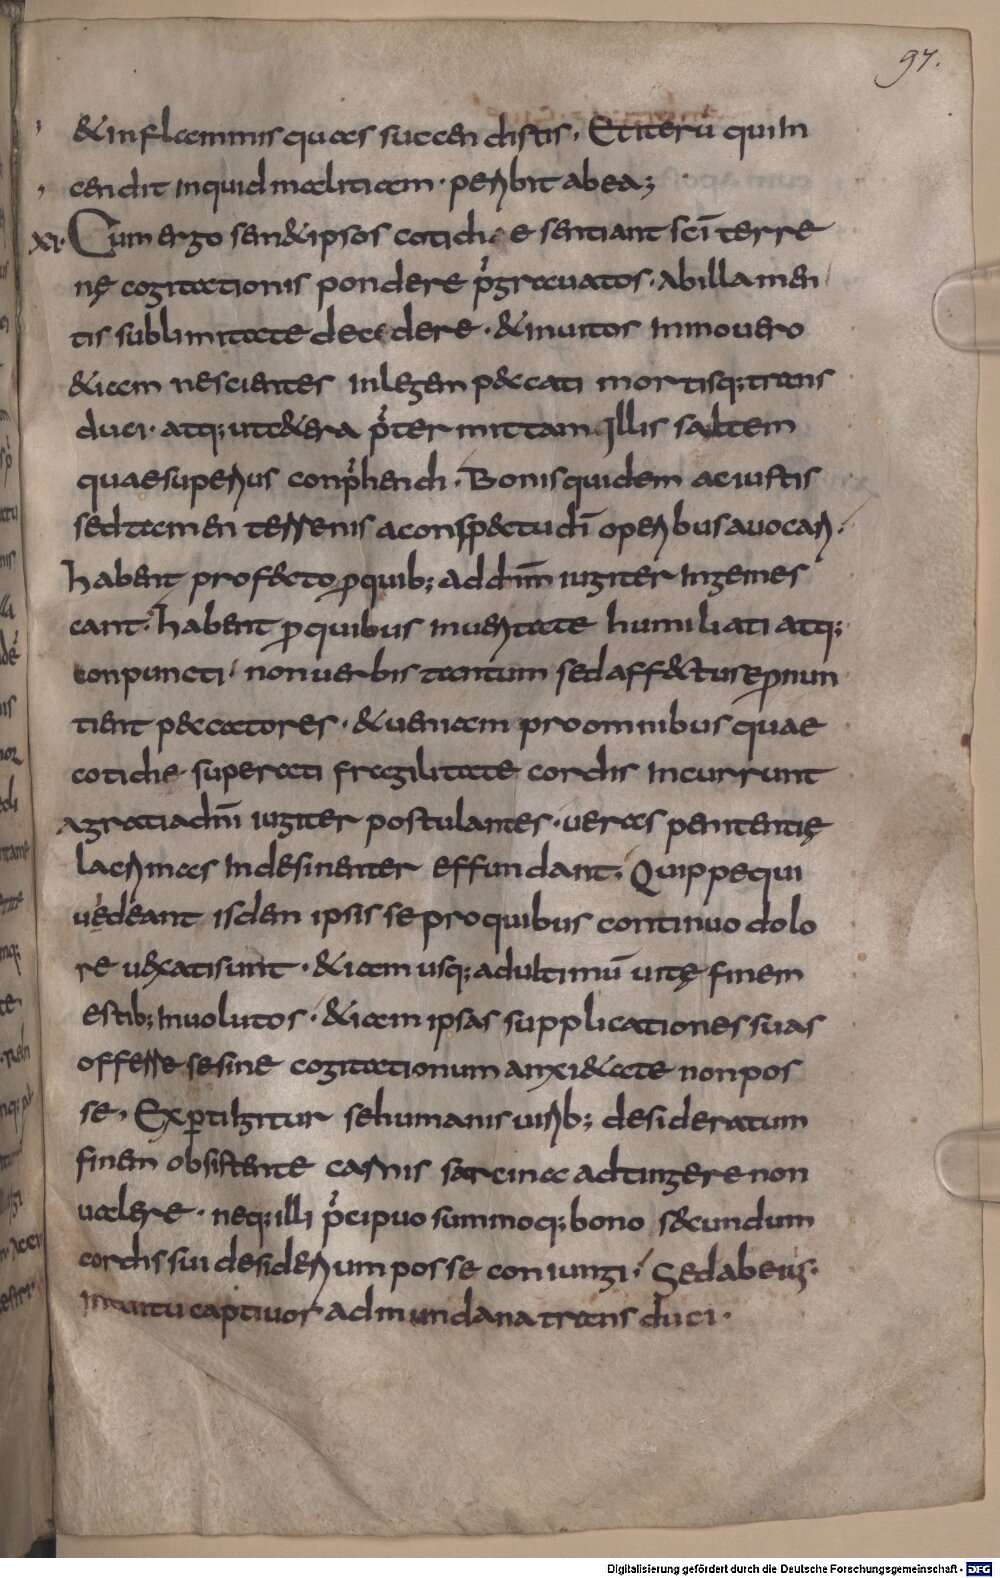 97.
&in flammis quas succendistis. Et iterū qui in
cendit inquid malitiam. peribit ab ea;
XI. Cum ergo semet ipsos cotidie sentiant scī terre
nę cogitationis pondere p̓grauatos. ab illa men
tis sublimitate decedere. & inuitos immo uero
&iam nescientes in legem peccati mortisq; trans
duci. atq; ut cetera p̓termittam Illis saltem
quae superius conp̓hendi. Bonis quidem ac iustis
sed tamen terrenis a conspectu dī operibus auocari.
habent profecto ꝓquib; ad dnm̄ iugiter ingemes
cant. habent ꝓquibus in ueritate humiliati atq;
conpuncti. non uerbis tantum sed affectu se ꝓnun
tient peccatores. & ueniam pro omnibus quae
cotidie superati fragilitate cordis incurrunt
a gratia dnī iugiter postulantes. ueras penitentię
lacrimas indesinenter effundant. Quippe qui
uideant isdem ipsis se pro quibus continuo dolo
re uexati sunt. &iam usq; ad ultimū uitę finem
estib; inuolutos. &iam ipsas supplicationes suas
offerre se sine cogitationum anxi&ate non pos
se. Exꝑti igitur se humanis uirib; desideratum
finem obsistente carnis sarcina adtingere non
ualere. neq; illi p̓cipuo summoq; bono secundum
cordis sui desiderium posse coniungi. Sed ab eius
intuitu captiuos ad mundana trans duci.
Digitalisierung gefördert durch die Deutsche Forschungsgemeinschaft - DFG